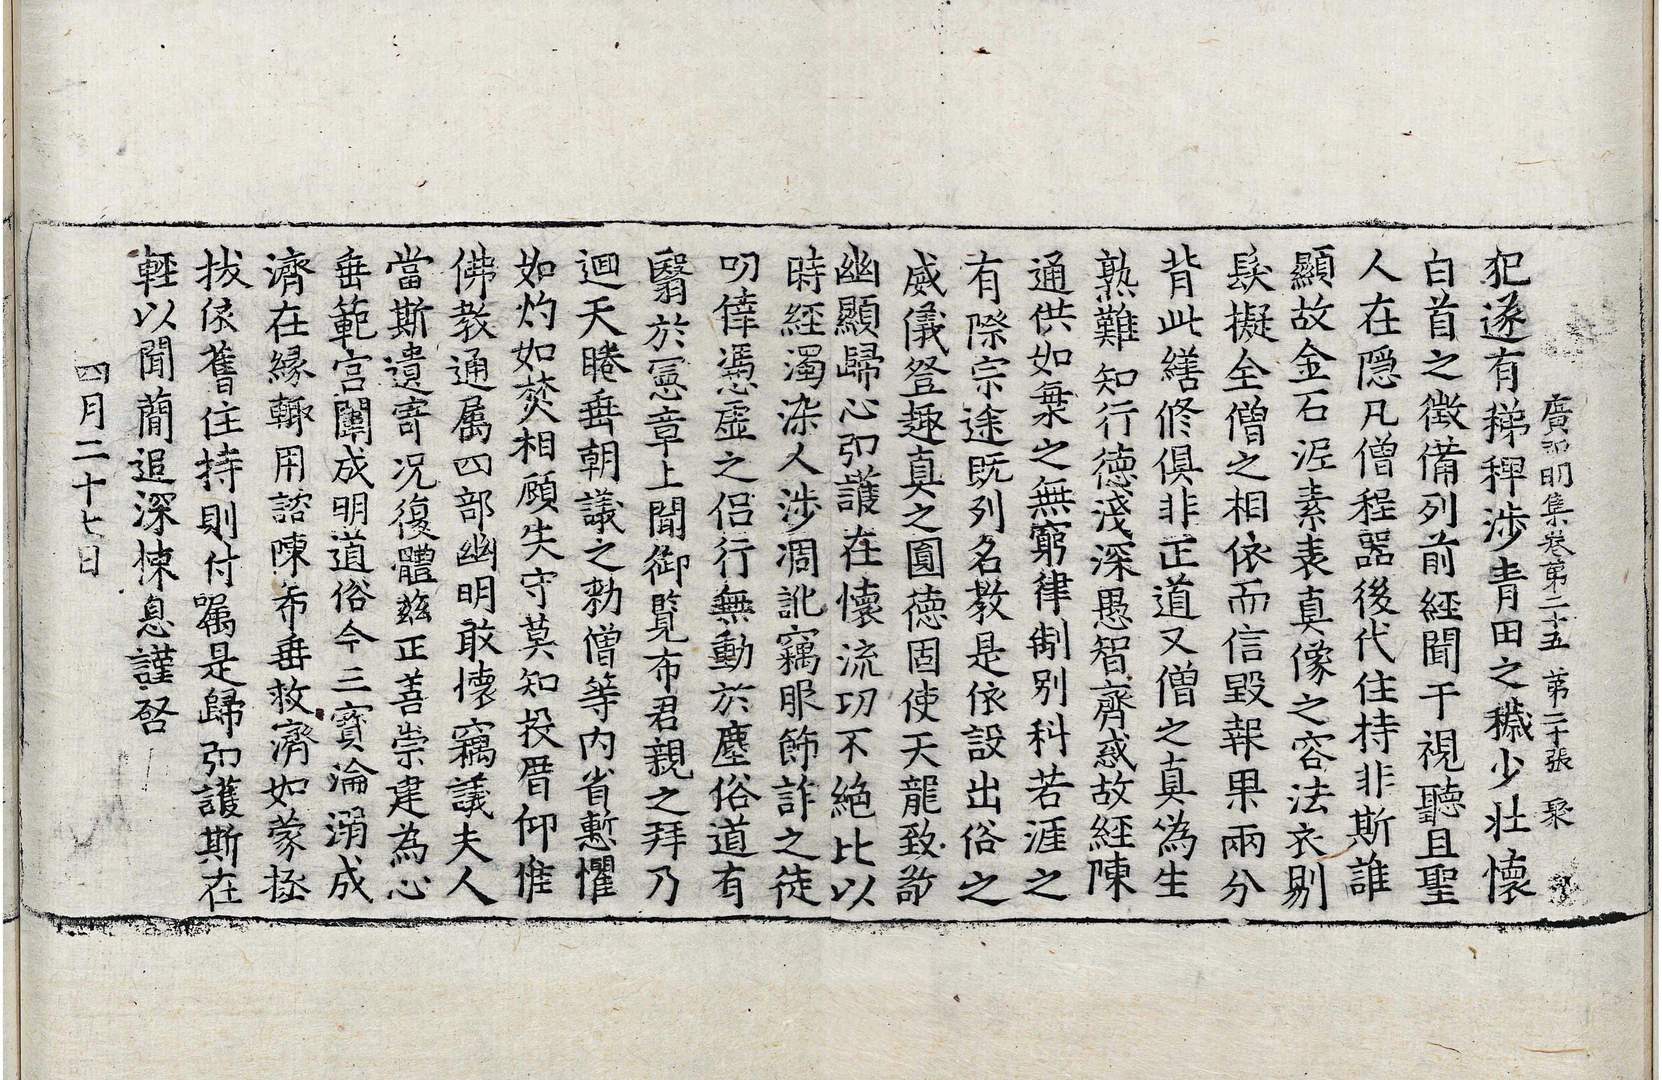 廣弘明集卷第二十五 第二十張 聚
犯遂有稊稗涉青田之穢少壯懷
白首之徵備列前經聞于視聽且聖
人在隱凡僧程器後代住持非斯誰
顯故金石泥素表真像之容法衣剔
髮擬全僧之相依而信毀報果兩分
背此繕修俱非正道又僧之真偽生
熟難知行德淺深愚智齊惑故經陳
通供如無之無窮律制別科若涯之
有際宗途既列名教是依設出俗之
威儀登趣真之圓德固使天龍致敬
幽顯歸心弘護在懷流功不絕比以
時經濁染人涉凋訛竊服飾詐之徒
叨倖憑虛之侶行無動於塵俗道有
翳於憲章上聞御覽布君親之拜乃
迴天睠垂朝議之勑僧等內省慙懼
如灼如焚相顧失守莫知投厝仰惟
佛教通属四部幽明敢懷竊議夫人
當斯遺寄况復體茲正善崇建為心
垂範宮闈成明道俗今三寶淪溺成
濟在緣輙用諮陳希垂救濟如蒙拯
拔依舊住持則付囑是歸弘護斯在
輕以聞簡追深悚息謹啓
四月二十七日